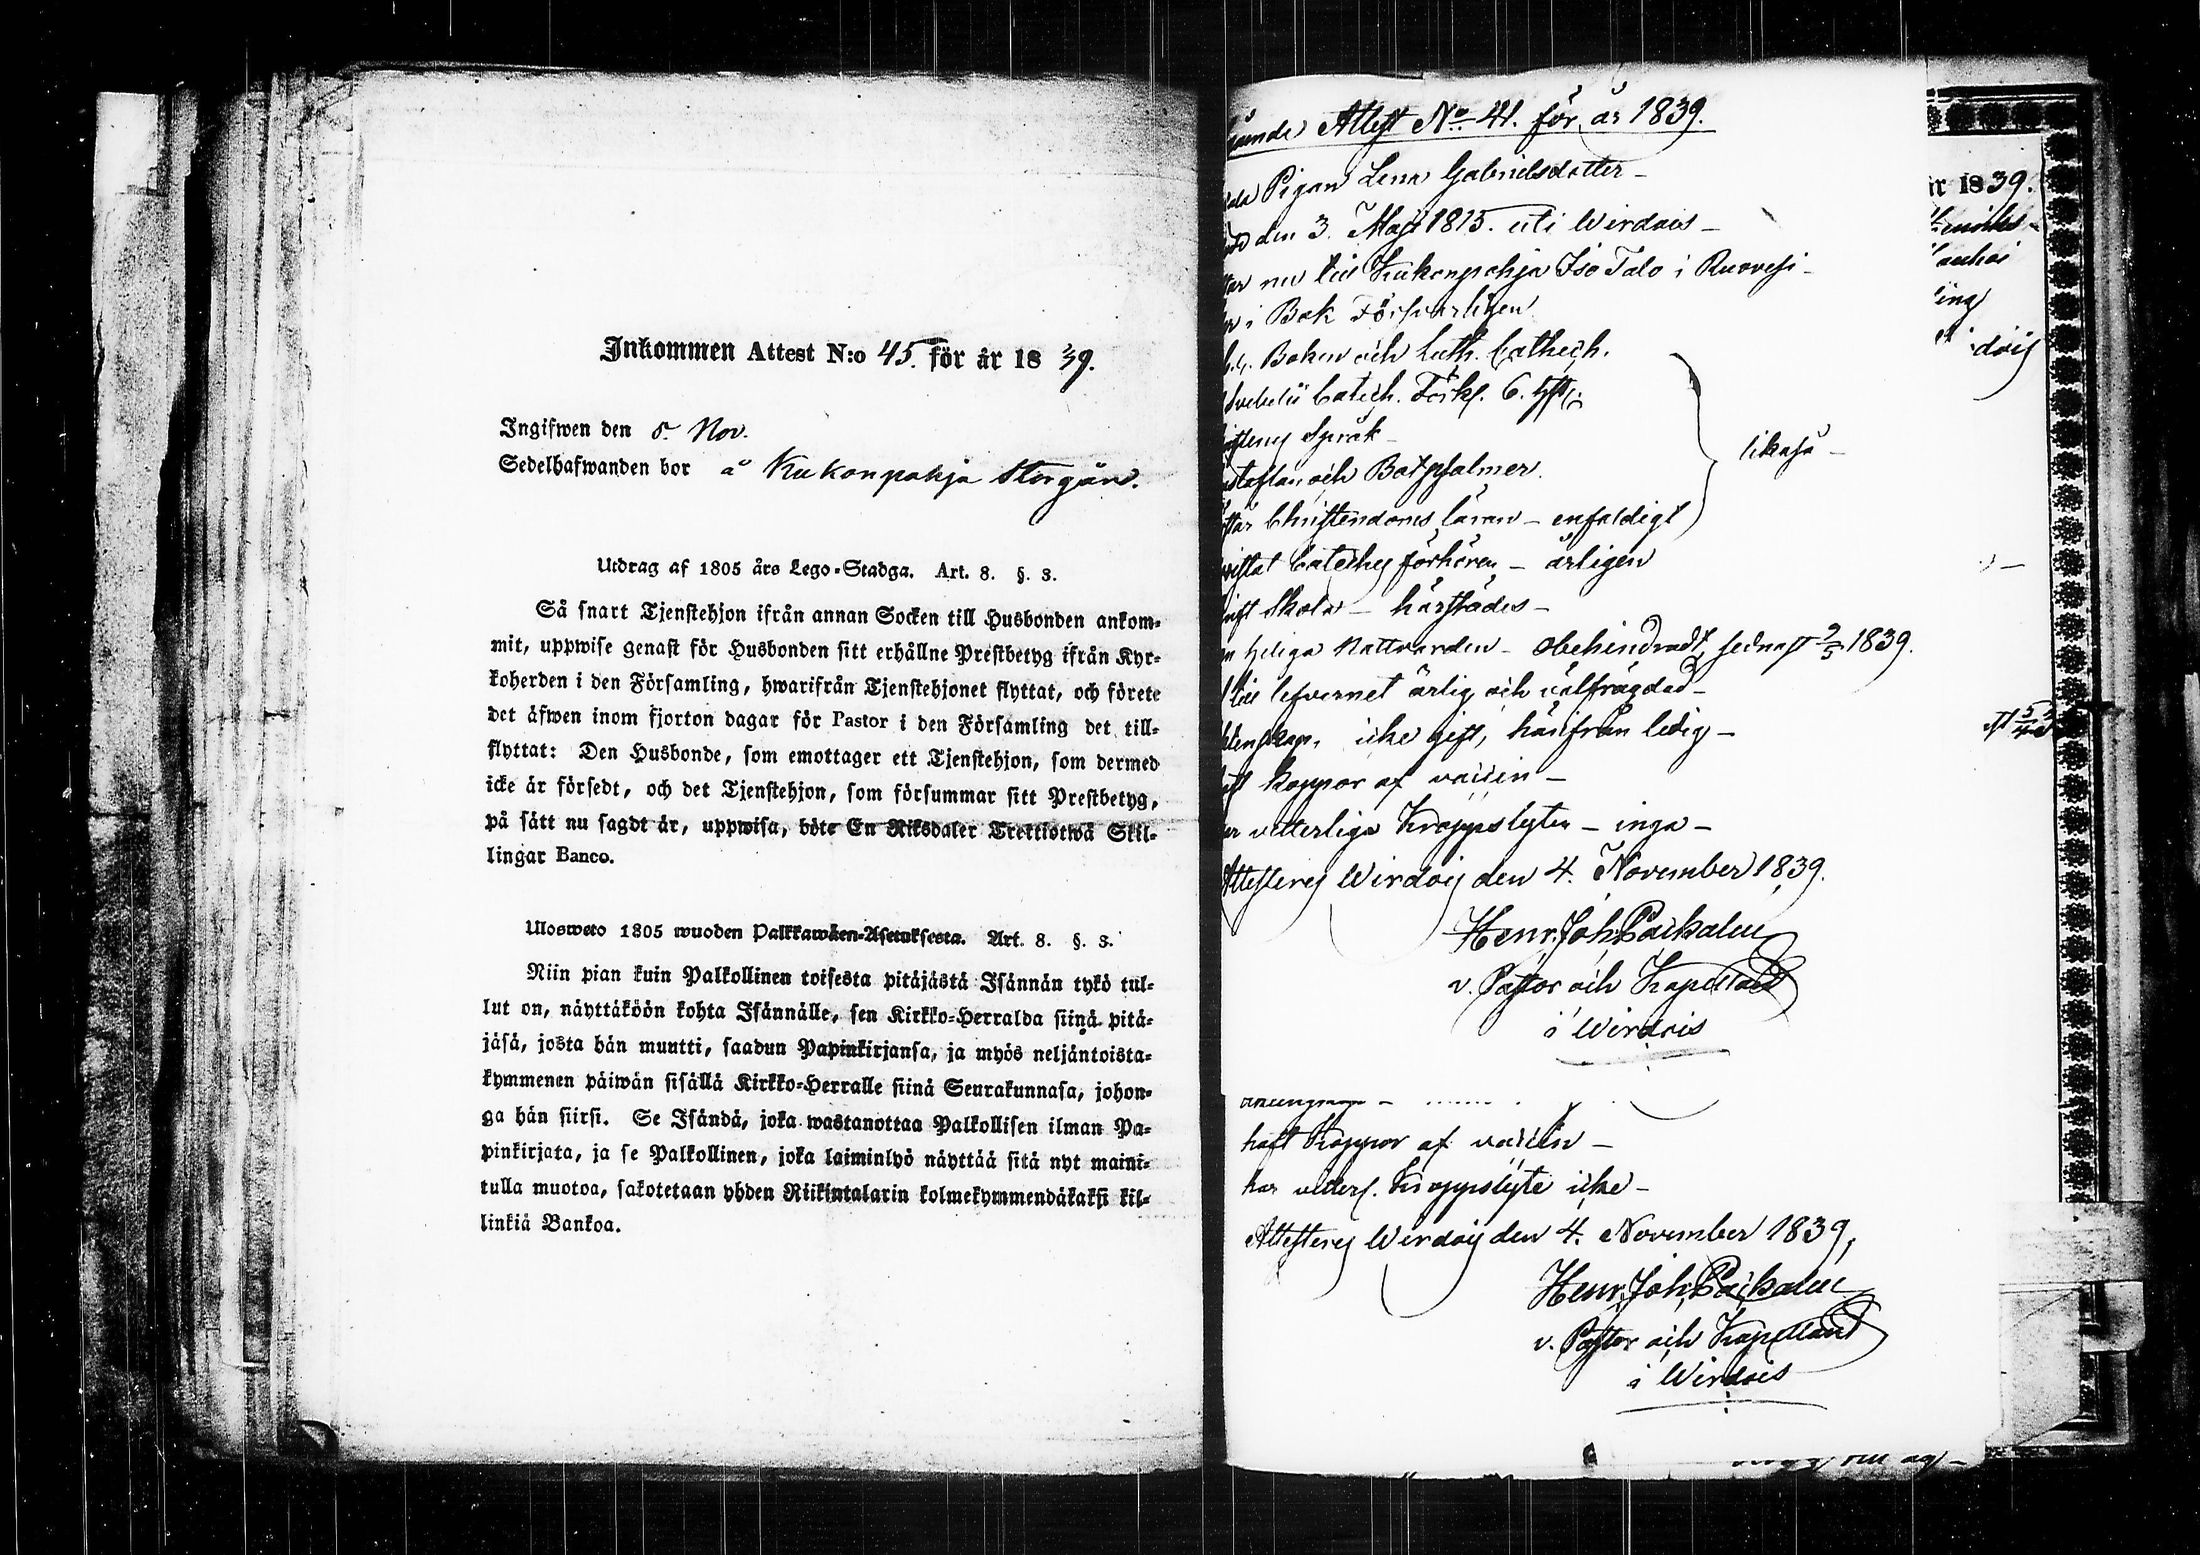 Inkommen Attest N:o 45. för år 1839.
Ingifwen den 5. Nov.
Sedelhafwanden bor å Kukonpohja Storgård.
Utdrag af 1805 års Lego-Stadga. Art. 8. §. 3.
Så snart Tjenstehjon ifrån annan Socken till Husbonden ankom-
mit, uppwise genast för Husbonden sitt erhållne Prestbetyg ifrån Kyr-
koherden i den Församling, hwarifrån Tjenstehjonet flyttat, och förete
det äfwen inom fjorton dagar för Pastor i den Församling det till-
flyttat: Den Husbonde, som emottager ett Tjenstehjon, som dermed
icke är försedt, och det Tjenstehjon, som försummar sitt Prestbetyg,
på sätt nu sagdt är, uppwisa, böte En Riksdaler Trettiotwå Skil-
lingar Banco.
Uloswето 1805 wuoden Palkkawäen-Asetuksesta. Art. 8. §. 3.
Niin pian kuin Palkollinen toisesta pitäjästä Isännän tykö tul-
lut on, näyttäköön kohta Isännälle, sen Kirkko-Herralda siinä pitä-
jäsä, josta hän muutti, saadun Papinkirjansa, ja myös neljäntoista-
kymmenen päiwän sisällä Kirkko-Herralle siinä Seurakunnasa, johon-
ga hän siirsi. Se Isändä, joka wastanottaa Palkollisen ilman Pa-
pinkirjata, ja se Palkollinen, joka laiminlyö näyttää sitä nyt maini-
tulla muotoa, sakotetaan yhden Riikintalarin kolmekymmendäkaksi kil-
linkiä Bankoa.
Attest No 41. för år 1839.
Pigan Lena Gabrielsdotter -
den 3. Maji 1815. uti Wirdois -
nu till Kukonpohja Iso Talo i Ruovesi -
i Bok Försvarligen
Boken och Luth. Cathech.
Catech. Förkl. 6. hfst.
Språk -
och Botpsalmer.
likaså -
Christendoms läran - enfaldigt
Catechesförhören - årligen
Skola - härstädes -
heliga Nattvarden - obehindradt, sednast 9/5 1839.
till lefvernet ärlig och välfrägdad -
icke gift, härifrån ledig -
koppor af vaccin -
vetterliga Kroppslyten - inga -
Attesteras Wirdois den 4. November 1839.
Henr. Joh. Packalen
v. Pastor och Kapellan
i Wirdois
haft Koppor af vaccin -
har vetterl. Kroppslyte icke -
Attesteras Wirdois den 4. November 1839,
Henr. Joh. Packalen
v. Pastor och Kapellan
i Wirdois
1839.